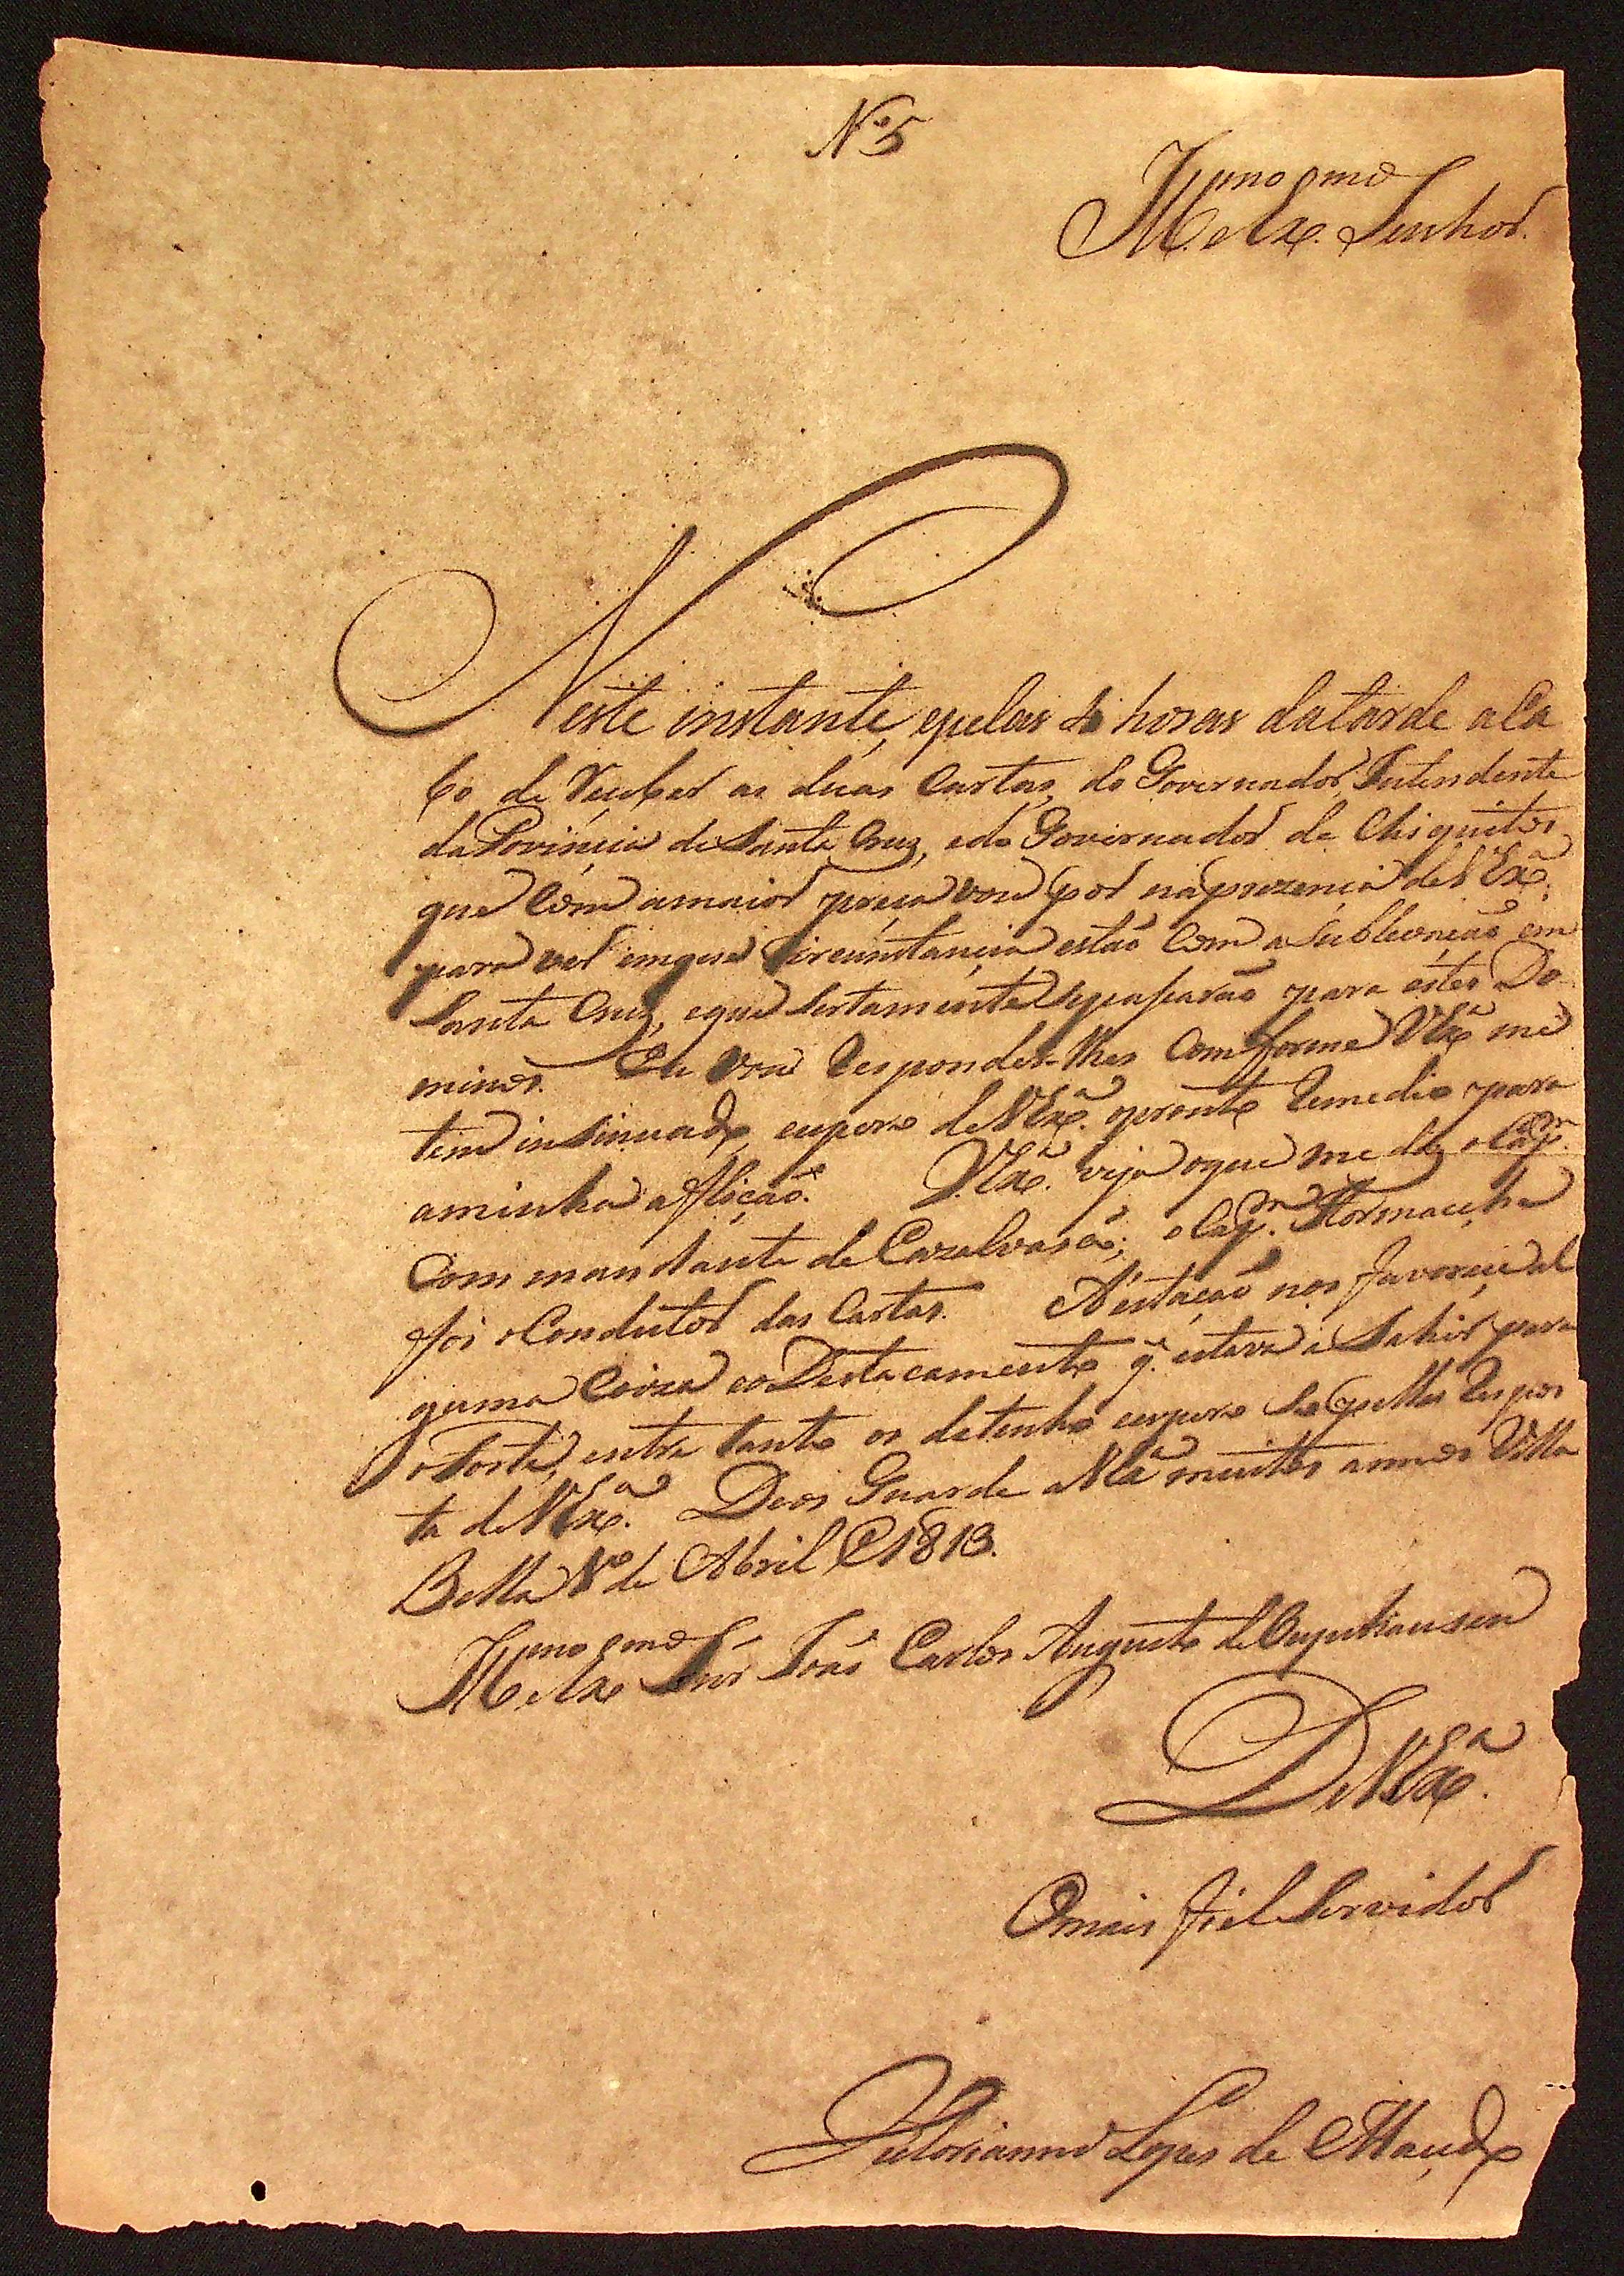 N.º 5
Ill.mo e Ex.mo Senhor.
Neste instante, e pelas horas da tarde aca
bo de receber as duas Cartas, do Governador Intendente
da Provincia de Santa Cruz, e do Governador de Chiquitos,
que com a maior preça vou por na prezença de V Ex.ª
para ver em que circunstancia estão com a sublevação em
Santa Cruz, e que sertamente se paçarão para estes Do-
minios. Eu vou responder-lhes comforme V Ex.ª me
tem insinuado, e espero de V Ex.ª o pronto remedio para
a minha aflição. V. Ex.ª veja o que me diz o Cap.m
Commandante de Cazalvasco; o Cap.m
foi o Condutor das Cartas. A estação nos favorece al
guma Coiza e o Destacamento q. estava a sahir para
o Forte, entre tanto os detenho e espero a respos
ta de V Ex.ª Deos Guarde a V Ex.ª muitos annos Villa
Bella de Abril de 1813.
Ill.mo e Ex.mo Snr. João Carlos Augusto de Oeynhausen
De V Ex.ª
O mais fiel Servidor
Lopes de Macedo